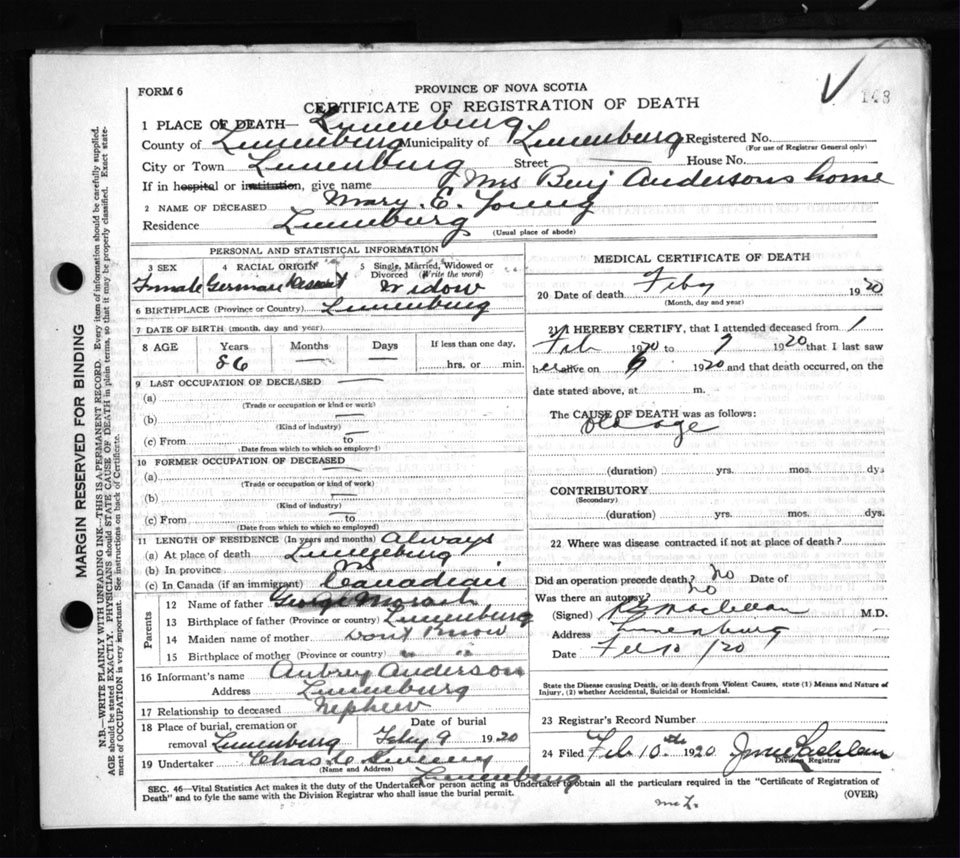 FORM 6
PROVINCE OF NOVA SCOTIA
148
CERTIFICATE OF REGISTRATION OF DEATH
1 PLACE OF DEATH— Lunenburg
County of Lunenburg Municipality of Lunenburg Registered No.
(For use of Registrar General only)
City or Town Lunenburg Street — House No.
If in hospital or institution, give name Mrs Benj Andersons home
2 NAME OF DECEASED Mary. E. Young
Residence Lunenburg
(Usual place of abode)
MARGIN RESERVED FOR BINDING
N.B.—WRITE PLAINLY WITH UNFADING INK—THIS IS A PERMANENT RECORD. Every item of information should be carefully supplied.
AGE should be stated EXACTLY. PHYSICIANS should STATE CAUSE OF DEATH in plain terms, so that it may be properly classified. Exact state-
ment of OCCUPATION is very important. See instructions on back of Certificate.
PERSONAL AND STATISTICAL INFORMATION
3 SEX 4 RACIAL ORIGIN 5 Single, Married, Widowed or
Divorced (Write the word)
Female German Descent Widow
6 BIRTHPLACE (Province or Country) Lunenburg
7 DATE OF BIRTH (month, day and year)
8 AGE Years Months Days If less than one day,
86 — — hrs. or min.
9 LAST OCCUPATION OF DECEASED —
(a)
(Trade or occupation or kind or work)
(b) —
(Kind of industry)
(c) From to
(Date from which to which so employed)
10 FORMER OCCUPATION OF DECEASED
(a) —
(Trade or occupation or kind of work)
(b) —
(Kind of industry)
(c) From to
(Date from which to which so employed)
11 LENGTH OF RESIDENCE (In years and months) Always
(a) At place of death Lunenburg
(b) In province NS
(c) In Canada (if an immigrant) Canadian
Parents
12 Name of father George Morash
13 Birthplace of father (Province or country) Lunenburg
14 Maiden name of mother Dont Know
15 Birthplace of mother (Province or country) " "
16 Informant's name Aubrey Anderson
Address Lunenburg
17 Relationship to deceased Nephew
18 Place of burial, cremation or Date of burial
removal Lunenburg Feby 9 1920
19 Undertaker Chas C Sweeny
(Name and Address) Lunenburg
MEDICAL CERTIFICATE OF DEATH
20 Date of death Feby 1920
(Month, day and year)
21 I HEREBY CERTIFY, that I attended deceased from 1
Feb 1920 to 7 1920 that I last saw
her alive on 6 1920 and that death occurred, on the
date stated above, at m.
The CAUSE OF DEATH was as follows:
Old age
(duration) yrs. mos. dys
CONTRIBUTORY
(Secondary)
(duration) yrs. mos. dys.
22 Where was disease contracted if not at place of death?
Did an operation precede death? no Date of
Was there an autopsy? no
(Signed) M.D.
Address Lunenburg
Date Feb 10 /20
State the Disease causing Death, or in death from Violent Causes, state (1) Means and Nature of
Injury, (2) whether Accidental, Suicidal or Homicidal.
23 Registrar's Record Number
24 Filed Feb 10th 1920
Division Registrar
SEC. 46—Vital Statistics Act makes it the duty of the Undertaker or person acting as Undertaker to obtain all the particulars required in the "Certificate of Registration of
Death" and to fyle the same with the Division Registrar who shall issue the burial permit.
(OVER)